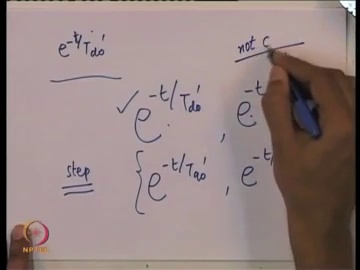 e^-t/T'do
not c
e^-t/T'do , e^-t
step { e^-t/T'do , e^-t/
NPTEL